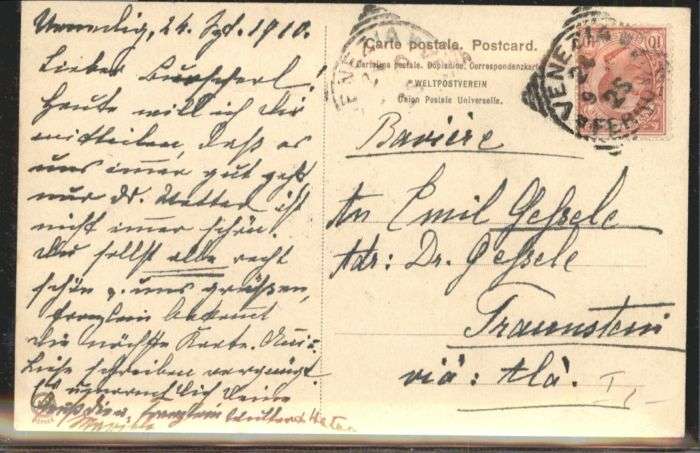 Venedig, 24. Spt. 1910.
Lieber Burscherl!
Heute will ich Dir
mitteilen, daß es
uns immer gut geht
nur d. Wetter ist
nicht immer schön.
Du sollst alle recht
schön v. uns grüßen,
bekomt
die nächste Karte.
schreiben vergnügt
Deine
Carte postale. Postcard.
Cartolina postale. Dopisnice. Correspondenzkarte
WELTPOSTVEREIN
Union Postale Universelle.
VENEZIA
VENEZIA
FERROVIA
10
Bavière
An Emil Gessele
Adr: Dr. Gessele
Traunstein
via: Ala.